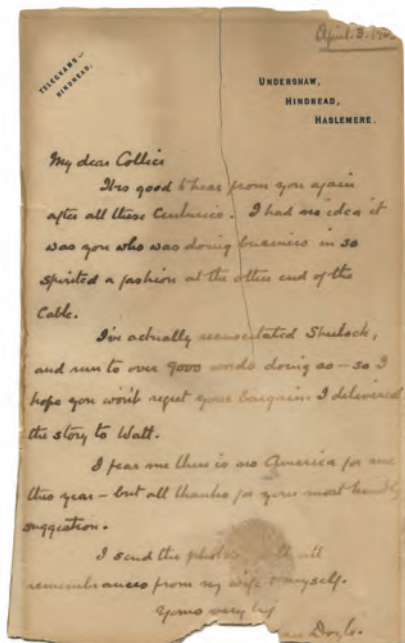 April. 3. 190
TELEGRAMS—
HINDHEAD.
UNDERSHAW,
HINDHEAD,
HASLEMERE.
My dear Collier
It is good to hear from you again
after all these Centuries. I had no idea it
was you who was doing business in so
spirited a fashion at the other end of the
Cable.
I've actually resuscitated Sherlock,
and run to over 9000 words doing so — so I
hope you won't regret your bargain. I delivered
the story to Watt.
I fear me there is no America for me
this year — but all thanks for your most kindly
suggestion.
I send the all
remembrances from my wife & myself.
Yours very
Doyle.